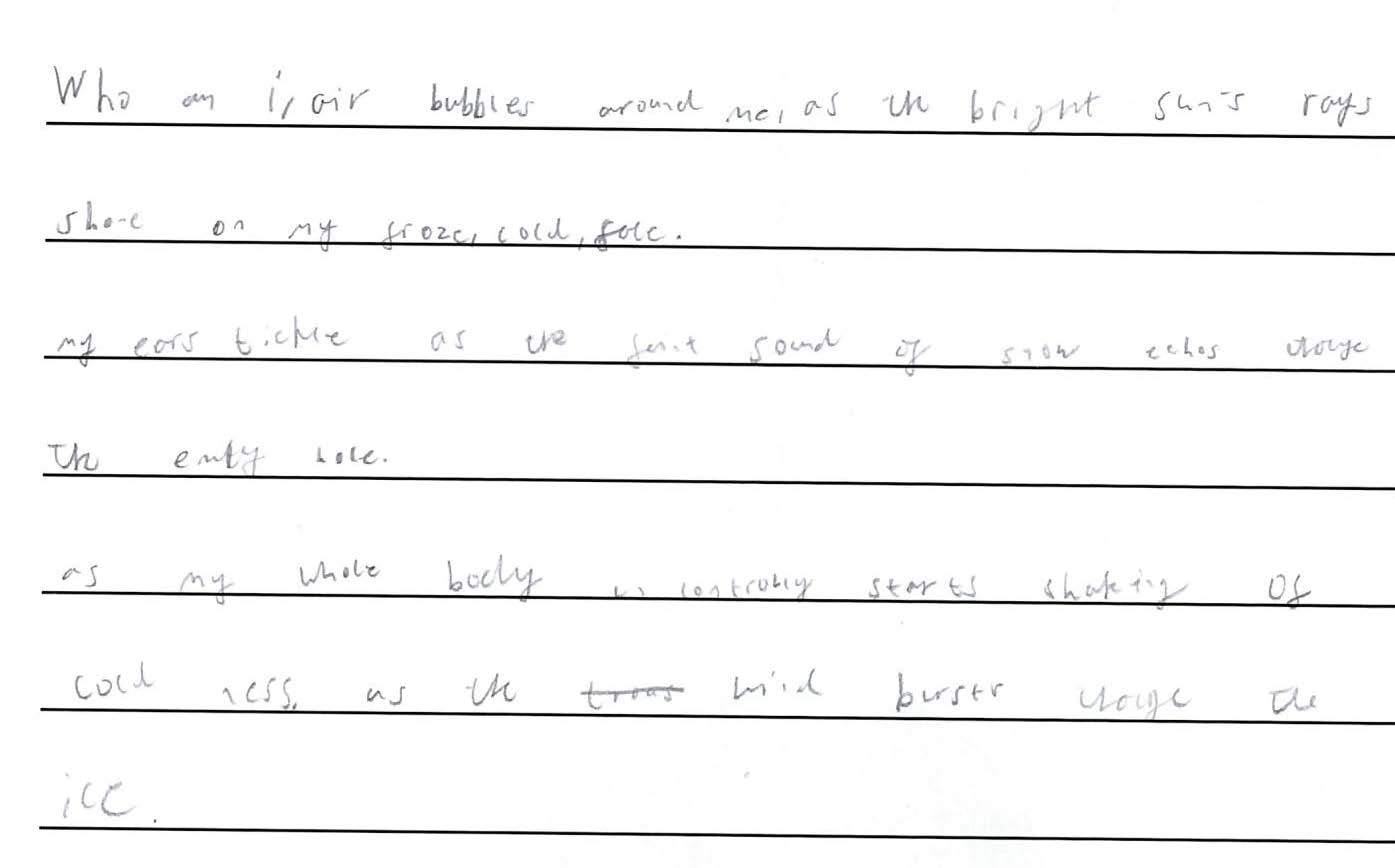 Who am i, air bubbles around me, as the bright sun's rays
shone on my froze, cold, face.
my ears tickle as the faint sound of snow echos
the emty hole.
as my whole body starts shaking of
cold ness, as the wind bursts the
ice.